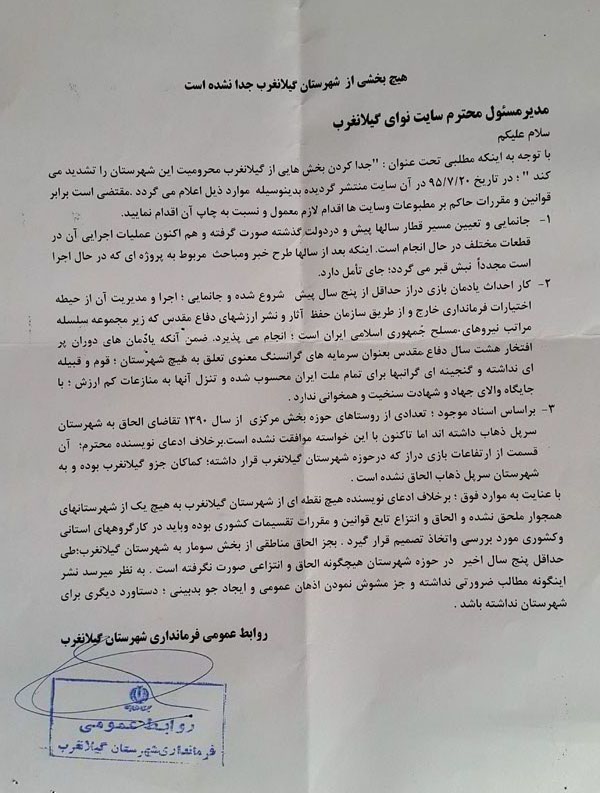 هیچ بخشی از شهرستان گیلانغرب جدا نشده است
مدیرمسئول محترم سایت نوای گیلانغرب
سلام علیکم
با توجه به اینکه مطلبی تحت عنوان : "جدا کردن بخش هایی از گیلانغرب محرومیت این شهرستان را تشدید می
کند " ؛ در تاریخ ۹۵/۷/۲۰ در آن سایت منتشر گردیده بدینوسیله موارد ذیل اعلام می گردد .مقتضی است برابر
قوانین و مقررات حاکم بر مطبوعات وسایت ها اقدام لازم معمول و نسبت به چاپ آن اقدام نمایید.
۱- جانمایی و تعیین مسیر قطار سالها پیش و دردولت گذشته صورت گرفته و هم اکنون عملیات اجرایی آن در
قطعات مختلف در حال انجام است. اینکه بعد از سالها طرح خبر ومباحث مربوط به پروژه ای که در حال اجرا
است مجدداً نبش قبر می گردد؛ جای تأمل دارد.
۲- کار احداث یادمان بازی دراز حداقل از پنج سال پیش شروع شده و جانمایی ؛ اجرا و مدیریت آن از حیطه
اختیارات فرمانداری خارج و از طریق سازمان حفظ آثار و نشر ارزشهای دفاع مقدس که زیر مجموعه سلسله
مراتب نیروهای مسلح جمهوری اسلامی ایران است ؛ انجام می پذیرد. ضمن آنکه یادمان های دوران پر
افتخار هشت سال دفاع مقدس بعنوان سرمایه های گرانسنگ معنوی تعلق به هیچ شهرستان ؛ قوم و قبیله
ای نداشته و گنجینه ای گرانبها برای تمام ملت ایران محسوب شده و تنزل آنها به منازعات کم ارزش ؛ با
جایگاه والای جهاد و شهادت سنخیت و همخوانی ندارد .
۳- براساس اسناد موجود ؛ تعدادی از روستاهای حوزه بخش مرکزی از سال ۱۳۹۰ تقاضای الحاق به شهرستان
سرپل ذهاب داشته اند اما تاکنون با این خواسته موافقت نشده است.برخلاف ادعای نویسنده محترم؛ آن
قسمت از ارتفاعات بازی دراز که درحوزه شهرستان گیلانغرب قرار داشته؛ کماکان جزو گیلانغرب بوده و به
شهرستان سرپل ذهاب الحاق نشده است .
با عنایت به موارد فوق ؛ برخلاف ادعای نویسنده هیچ نقطه ای از شهرستان گیلانغرب به هیچ یک از شهرستانهای
همجوار ملحق نشده و الحاق و انتزاع تابع قوانین و مقررات تقسیمات کشوری بوده وباید در کارگروههای استانی
وکشوری مورد بررسی واتخاذ تصمیم قرار گیرد . بجز الحاق مناطقی از بخش سومار به شهرستان گیلانغرب؛طی
حداقل پنج سال اخیر در حوزه شهرستان هیچگونه الحاق و انتزاعی صورت نگرفته است . به نظر میرسد نشر
اینگونه مطالب ضرورتی نداشته و جز مشوش نمودن اذهان عمومی و ایجاد جو بدبینی ؛ دستاورد دیگری برای
شهرستان نداشته باشد .
روابط عمومی فرمانداری شهرستان گیلانغرب
روابط عمومی
فرمانداری شهرستان گیلانغرب